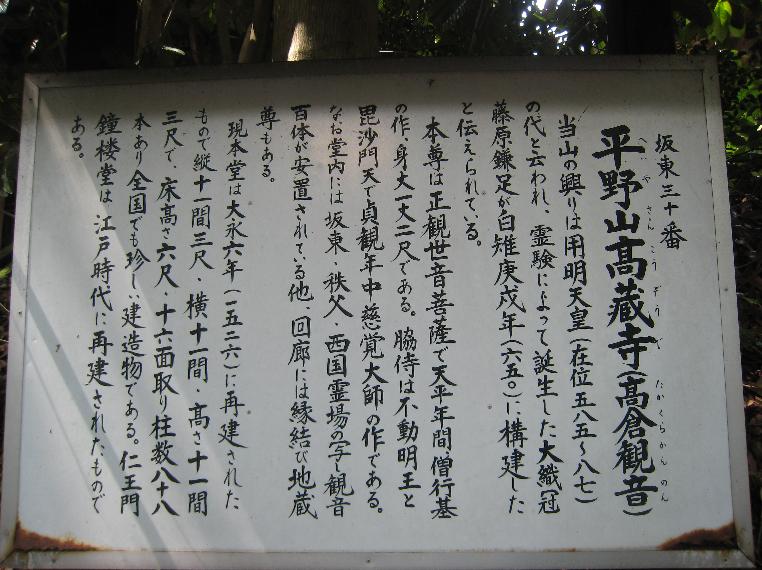 坂東三十番
平野山高蔵寺(高倉観音)
へいやさんこうぞうじ たかくらかんのん
当山の興りは用明天皇(在位五八五〜八七)
の代と云われ、霊験によって誕生した大織冠
藤原鎌足が白雉庚戌年(六五〇)に構建した
と伝えられている。
本尊は正観世音菩薩で天平年間僧行基
の作、身丈一丈二尺である。脇侍は不動明王と
毘沙門天で貞観年中慈覚大師の作である。
なお堂内には坂東・秩父・西国霊場の写し観音
百体が安置されている他、回廊には縁結び地蔵
尊もある。
現本堂は大永六年(一五二六)に再建された
もので縦十一間三尺・横十一間 高さ十一間
三尺で、床高さ六尺・十六面取り柱数八十八
本あり全国でも珍しい建造物である。仁王門
鐘楼堂は江戸時代に再建されたもので
ある。